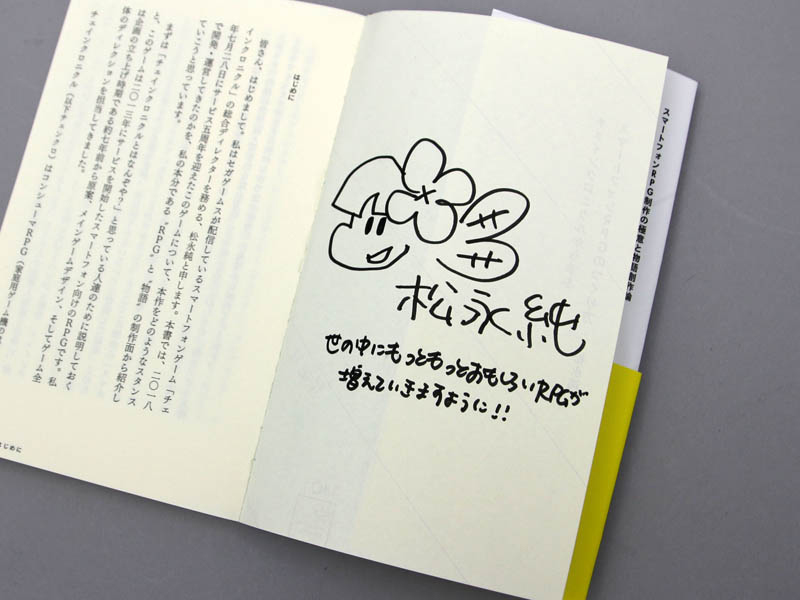 はじめに
皆さん、はじめまして。私はセガゲームスが配信しているスマートフォンゲーム「チェ
インクロニクル」の総合ディレクターを務める、松永純と申します。本書では、二〇一八
年七月二八日にサービス五周年を迎えたこのゲームについて、本作をどのようなスタンス
で開発・運営してきたのかを、私の本分である“RPG”と“物語”の制作面から紹介し
ていこうと思っています。
まずは「チェインクロニクルとはなんぞや？」と思っている人達のために説明しておく
と、このゲームは二〇一三年にサービスを開始したスマートフォン向けのRPGです。私
は企画の立ち上げ時期である約七年前から原案、メインゲームデザイン、そしてゲーム全
体のディレクションを担当してきました。
チェインクロニクル（以下チェンクロ）はコンシューマRPG（家庭用ゲーム機の
はじめに
松永純
世の中にもっともっとおもしろいRPGが
増えていきますように!!
スマートフォンRPG制作の極意と物語創作論